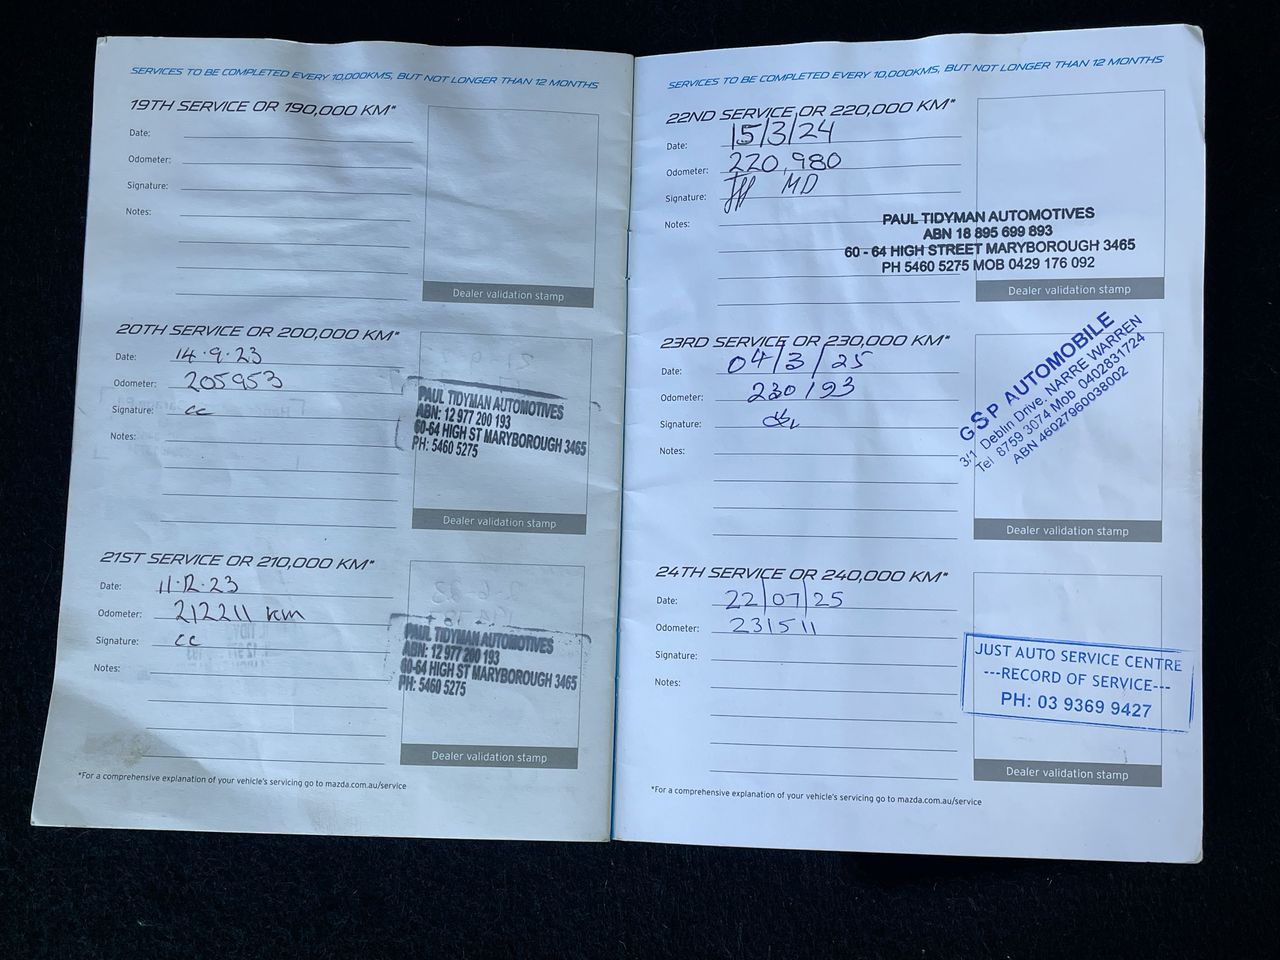 SERVICES TO BE COMPLETED EVERY 10,000KMS, BUT NOT LONGER THAN 12 MONTHS
19TH SERVICE OR 190,000 KM*
Date:
Odometer:
Signature:
Notes:
Dealer validation stamp
20TH SERVICE OR 200,000 KM*
Date: 14.9.23
Odometer: 205953
Signature: cc
Notes:
PAUL TIDYMAN AUTOMOTIVES
ABN: 12 977 200 193
60-64 HIGH ST MARYBOROUGH 3465
PH: 5460 5275
Dealer validation stamp
21ST SERVICE OR 210,000 KM*
Date: 11.12.23
Odometer: 212211 km
Signature: cc
Notes:
PAUL TIDYMAN AUTOMOTIVES
ABN: 12 977 200 193
60-64 HIGH ST MARYBOROUGH 3465
PH: 5460 5275
Dealer validation stamp
*For a comprehensive explanation of your vehicle's servicing go to mazda.com.au/service
SERVICES TO BE COMPLETED EVERY 10,000KMS, BUT NOT LONGER THAN 12 MONTHS
22ND SERVICE OR 220,000 KM*
Date: 15/3/24
Odometer: 220,980
Signature: MD
Notes:
PAUL TIDYMAN AUTOMOTIVES
ABN 18 895 699 893
60 - 64 HIGH STREET MARYBOROUGH 3465
PH 5460 5275 MOB 0429 176 092
Dealer validation stamp
23RD SERVICE OR 230,000 KM*
Date: 04/3/25
Odometer: 230193
Signature:
Notes:
GSP AUTOMOBILE
3/1 Deblin Drive, NARRE WARREN
Tel 8759 3074 Mob 0402831724
ABN 46027960038002
Dealer validation stamp
24TH SERVICE OR 240,000 KM*
Date: 22/07/25
Odometer: 231511
Signature:
Notes:
JUST AUTO SERVICE CENTRE
---RECORD OF SERVICE---
PH: 03 9369 9427
Dealer validation stamp
*For a comprehensive explanation of your vehicle's servicing go to mazda.com.au/service